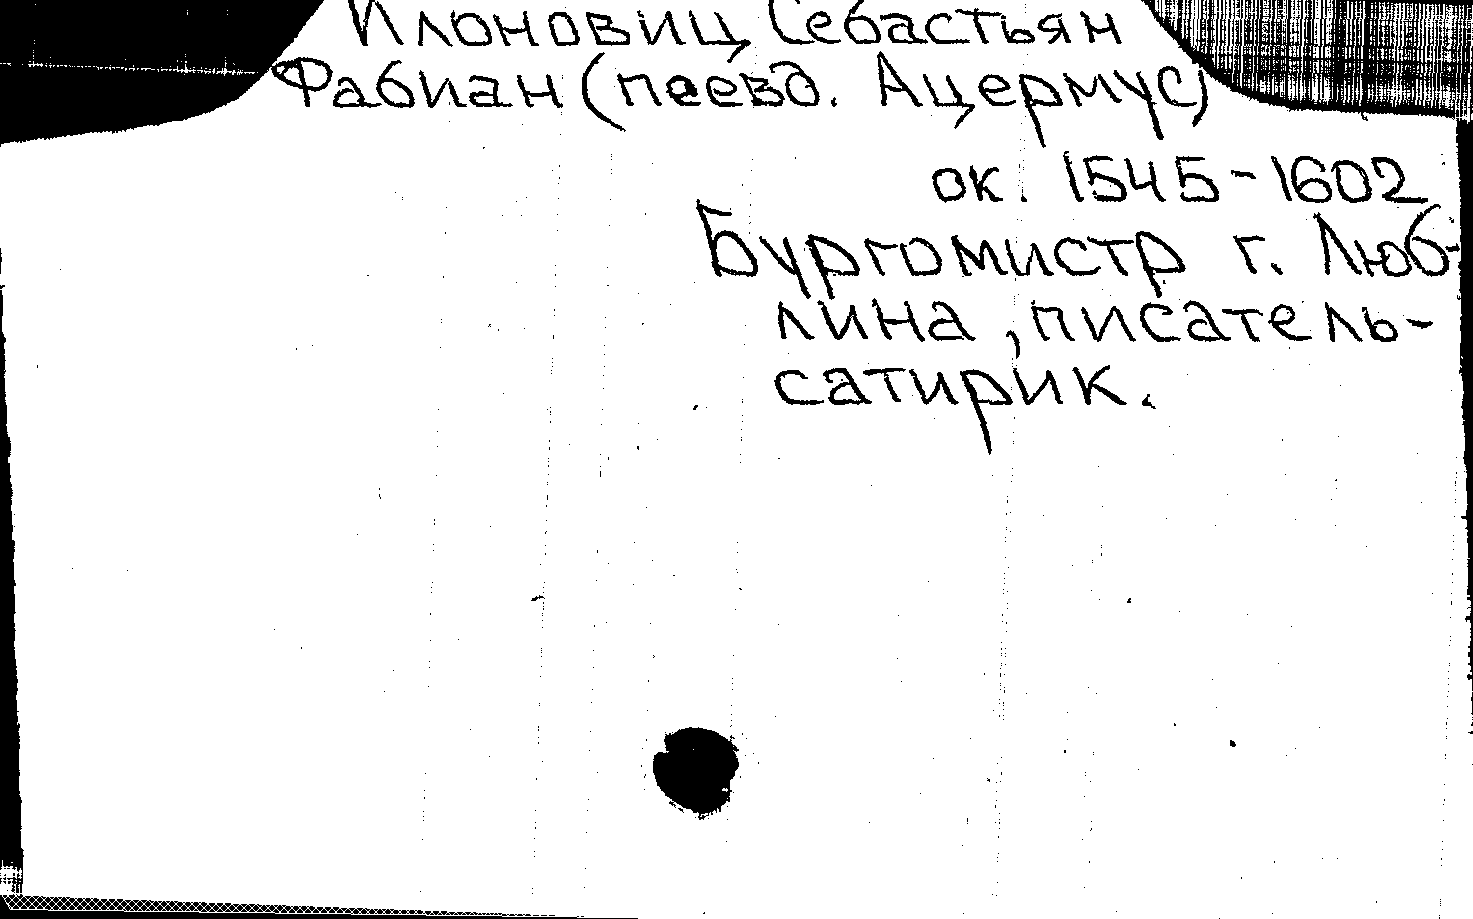 Клоновиц Себастьян
Фабиан (псевд. Ацермус)
ок. 1545-1602
Бургомистр г. Люб-
лина, писатель-
сатирик.